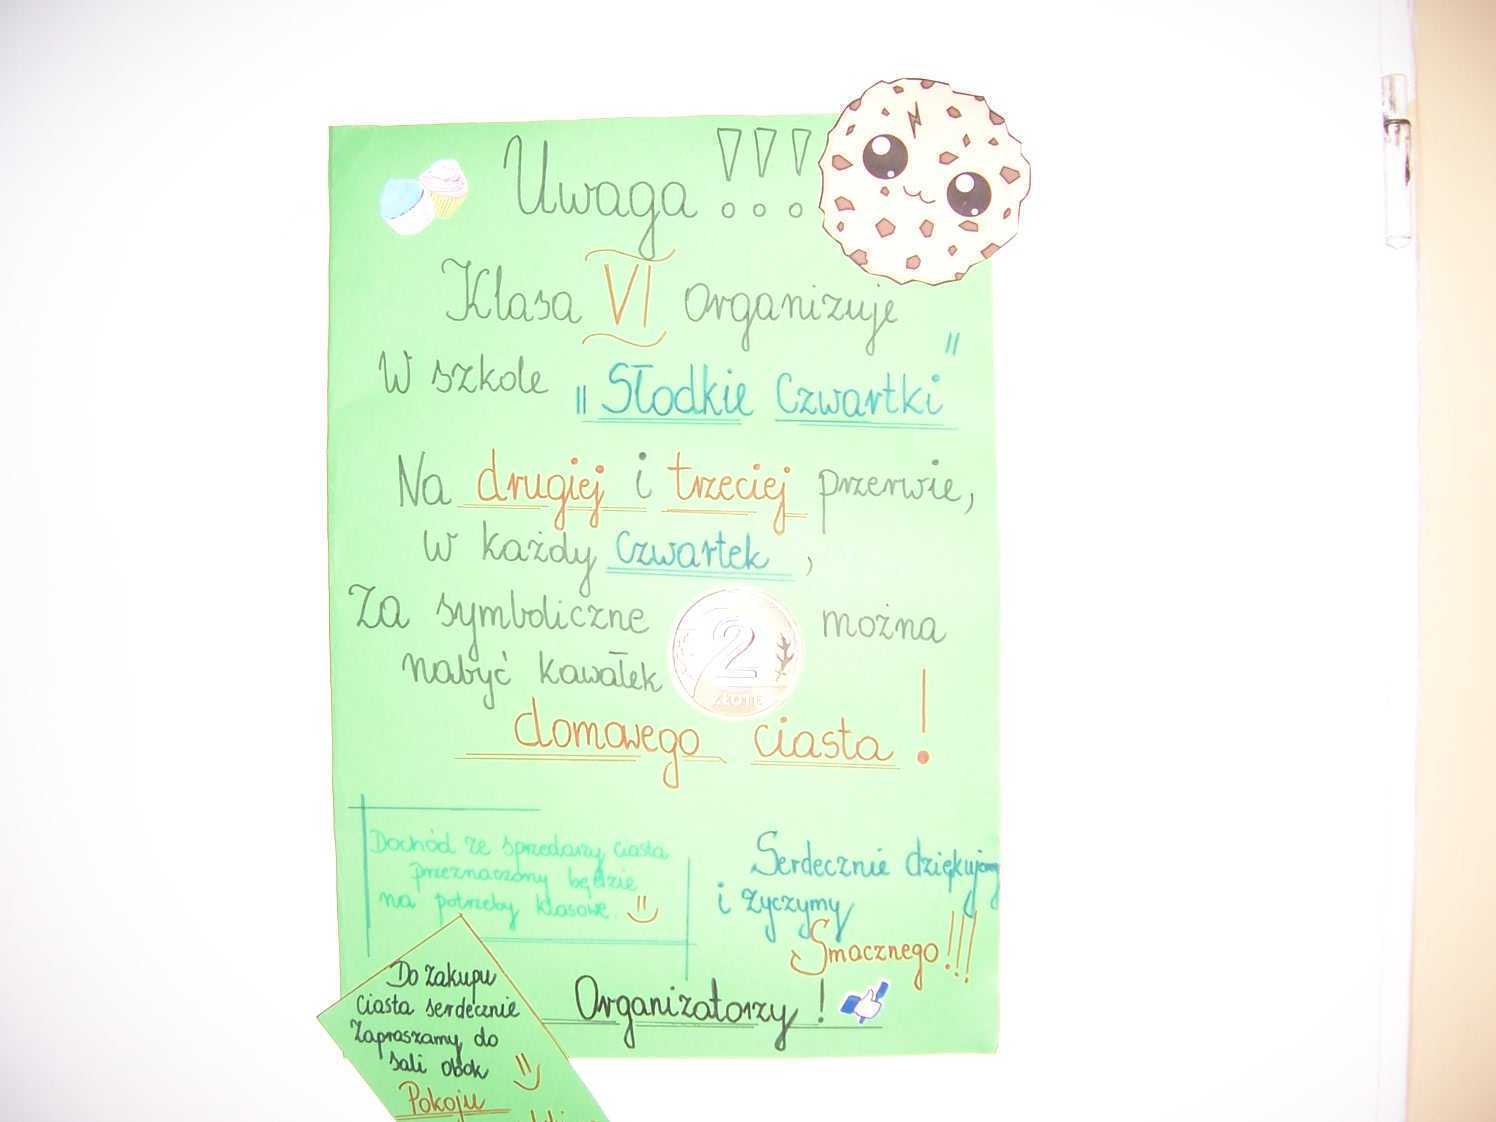 Uwaga !!!
Klasa VI organizuje
W szkole „Słodkie Czwartki"
Na drugiej i trzeciej przerwie,
w każdy czwartek,
Za symboliczne 2 ZŁOTE można
nabyć kawałek
domowego ciasta!
Dochód ze sprzedaży ciasta
przeznaczony będzie
na potrzeby klasowe.
Serdecznie dziękujemy
i życzymy
Smacznego!!!
Organizatorzy!
Do zakupu
ciasta serdecznie
Zapraszamy do
sali obok
Pokoju